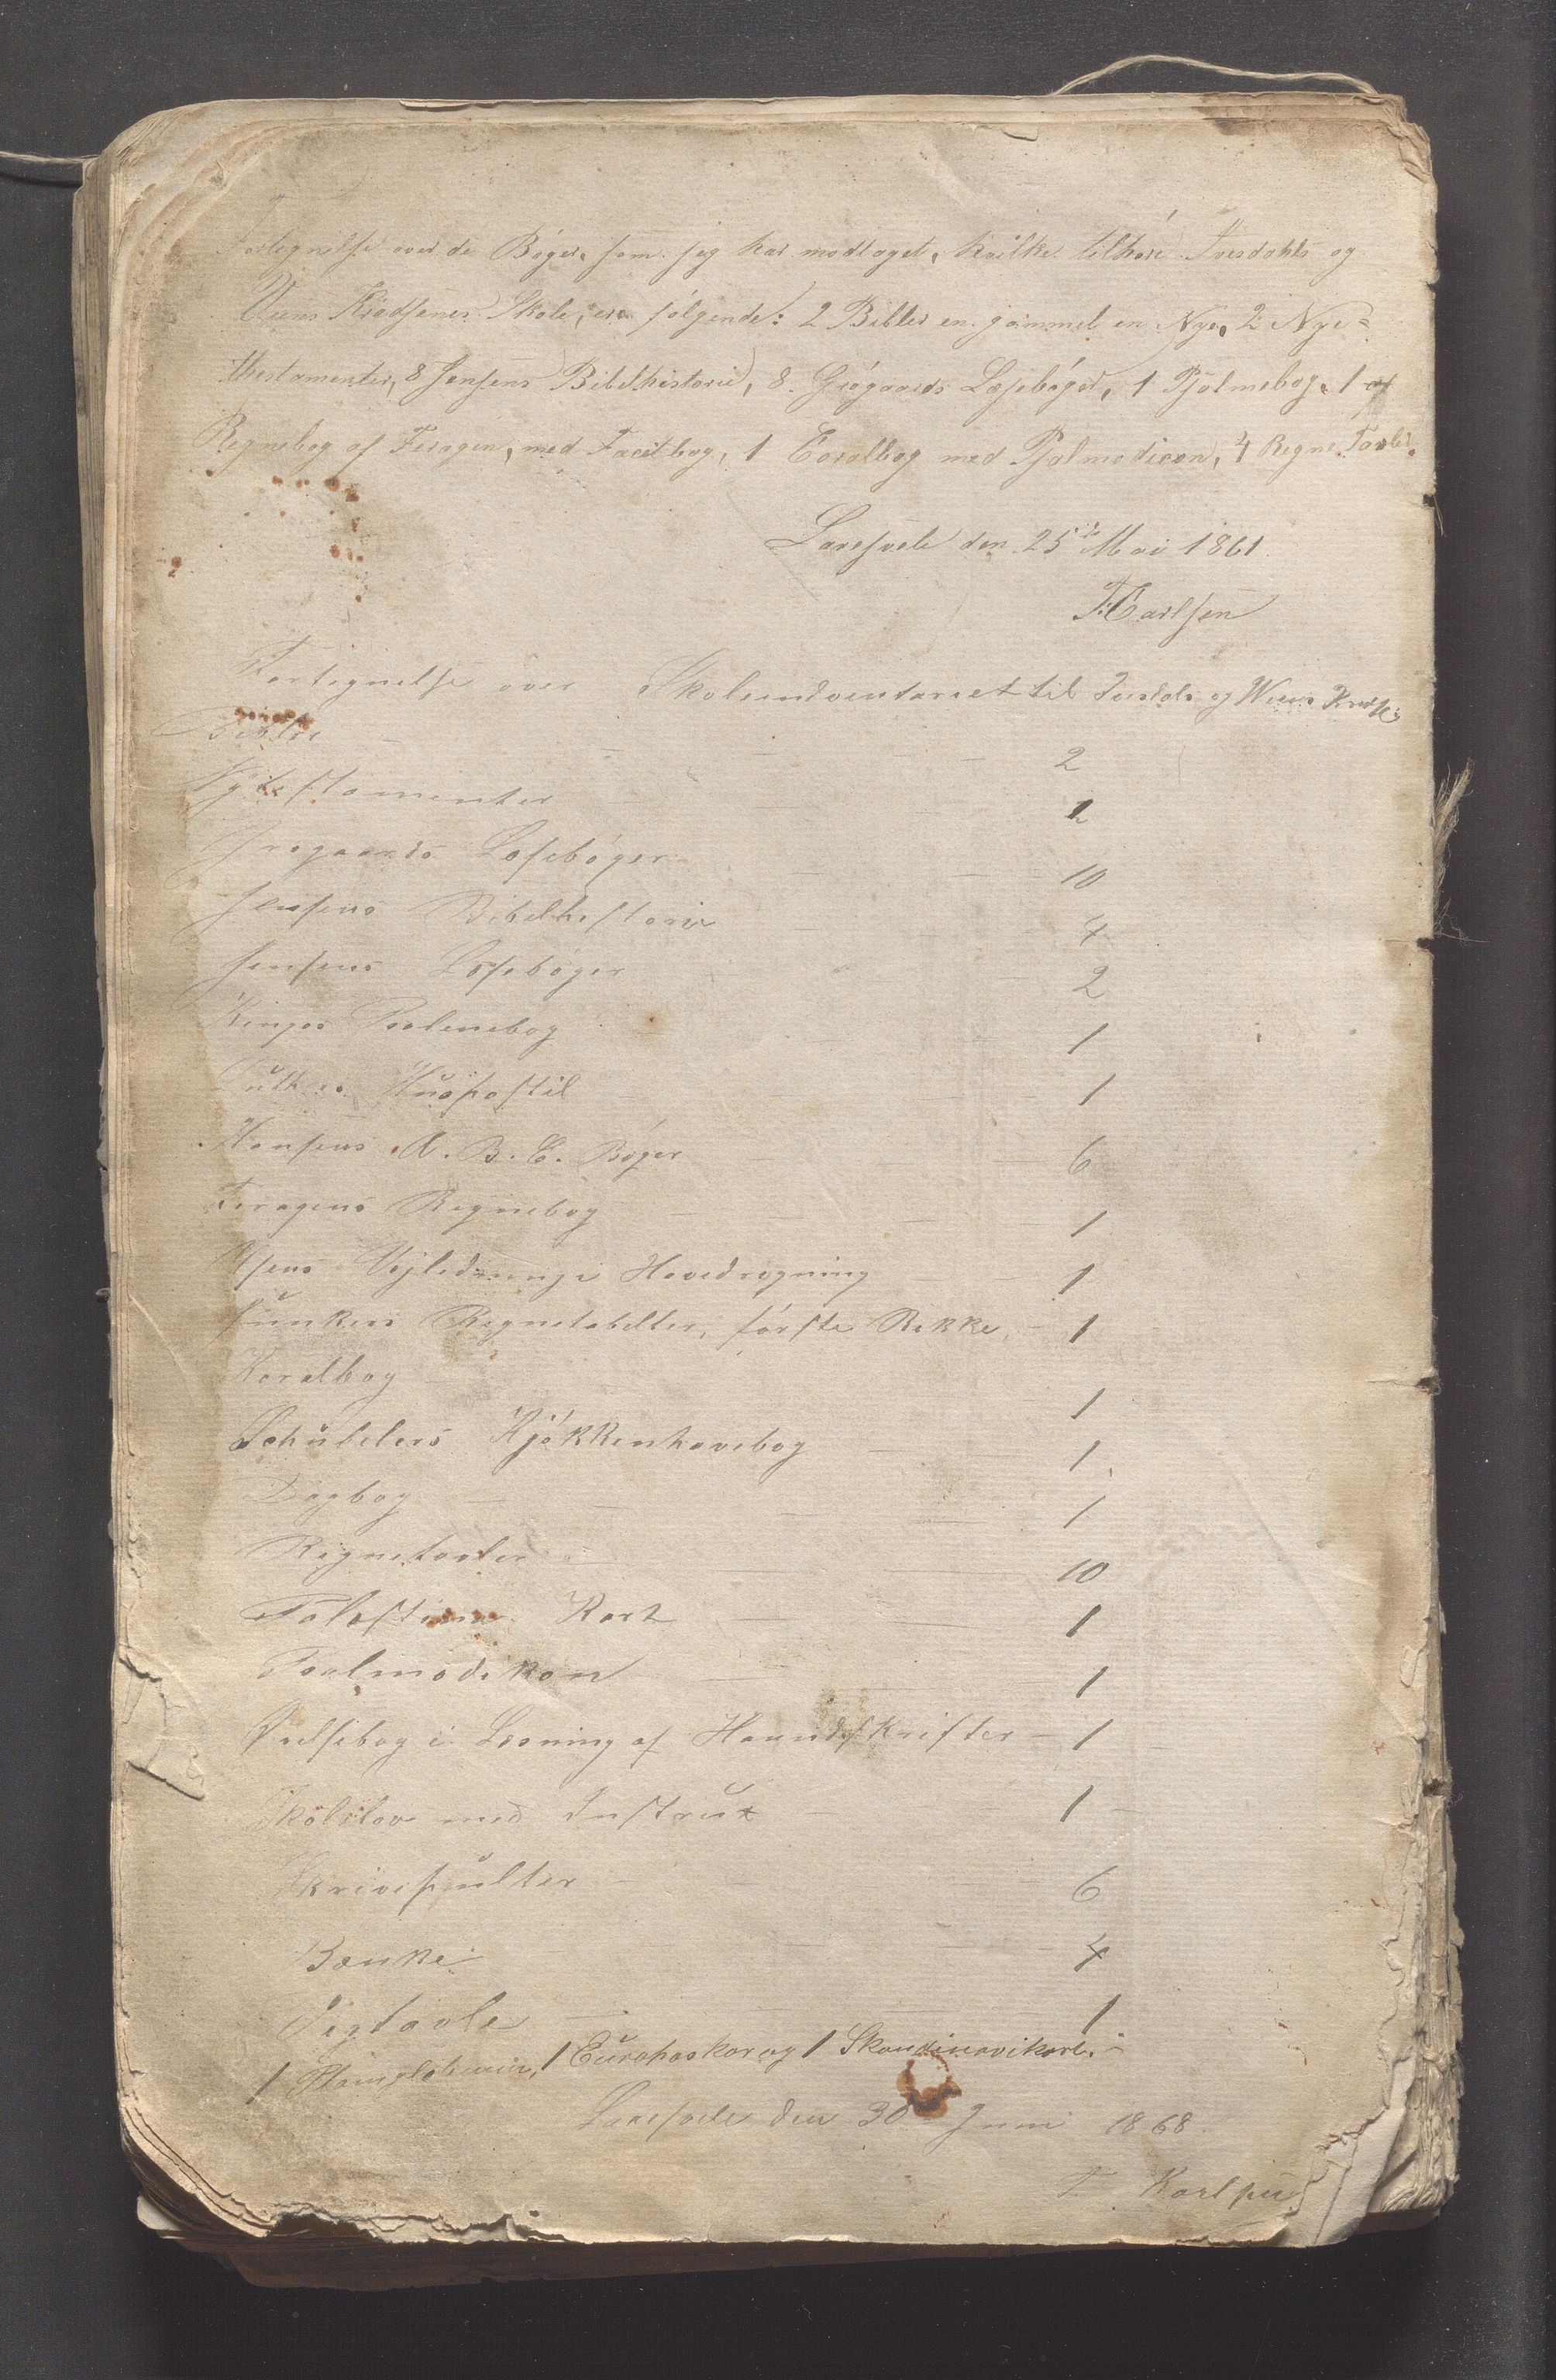 Fortegnelse over de Bøger, som jeg har modtaget, hvilke tilhøre Tvesdahls og
Viens Kredsenes Skole, ere følgende: 2 Bibler en gammel en Nye, 2 Nye=
thestamenter, 8 Jensens Bibelhistorie, 8 Grøgaards Læsebøger, 1 Psalmebog, 1
Regnebog af Feragen, med Facitbog, 1 Coralbog med Psalmodicon, 4 Regne Tavler.
den 25de Mai 1861
T. Carlsen
Fortegnelse over Skoleindventariet til og Kredse
Bibler 2
Nytestamenter
Grogaards Læsebøger 10
Jensens Bibelhistorie 4
Jensens Læsebøger 2
Kingos Psalmebog 1
Luthers Huspostil 1
Hansens A. B. C. Bøger 6
Feragens Regnebog 1
Vejledning i Hovedregning 1
Regnetabeller, første Rekke, 1
Koralbog 1
Schübelers Kjøkkenhavebog 1
Dagbog 1
Regnetavler 10
Palæstina Kart 1
Psalmodikon 1
i Læsning af Haandskrifter 1
Skolelov med Instrux 1
Skrivepulter 6
Bænke 4
1
1 Planiglobium, 1 Europaskar og 1 Skandinavikart.
den 30 Juni 1868
T. Karlsen